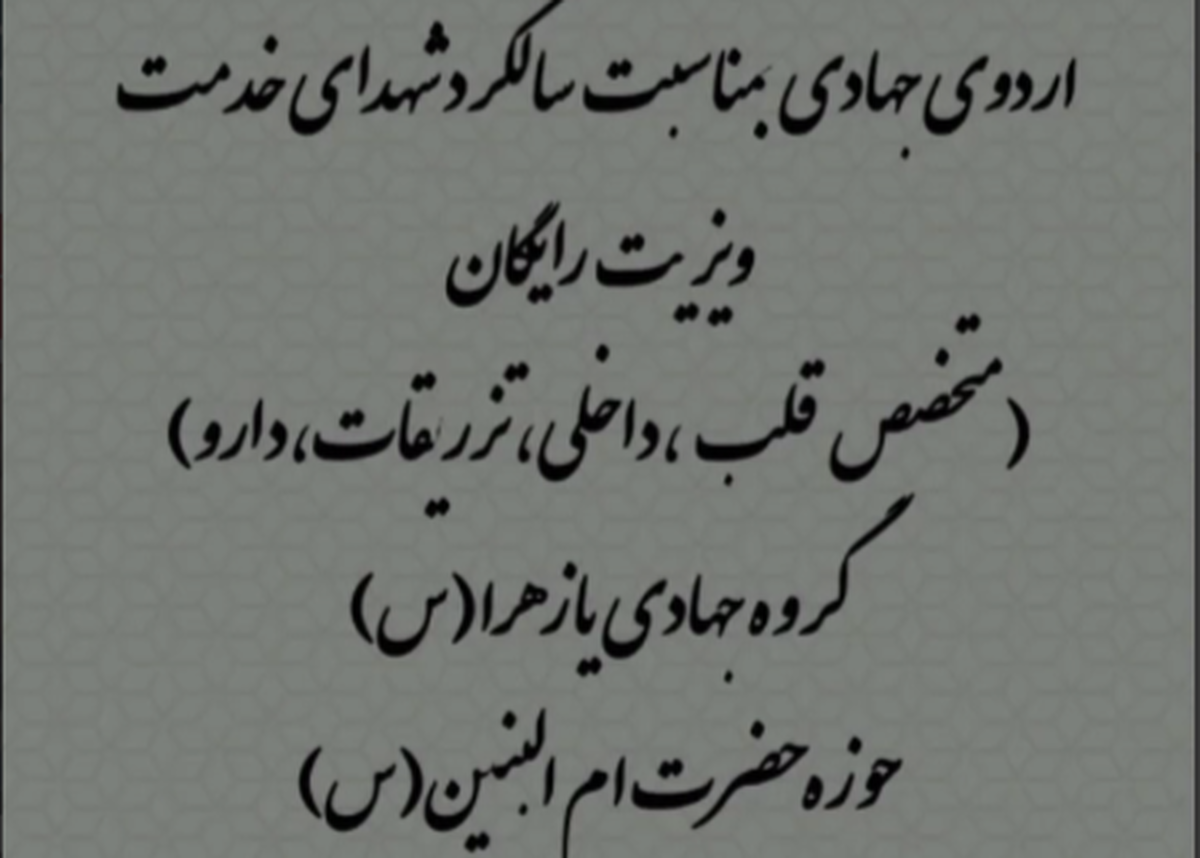 اردوی جهادی بمناسبت سالگرد شهدای خدمت
ویزیت رایگان
(متخصص قلب ،داخلی،تزریقات،دارو)
گروه جهادی یازهرا(س)
حوزه حضرت ام البنین(س)